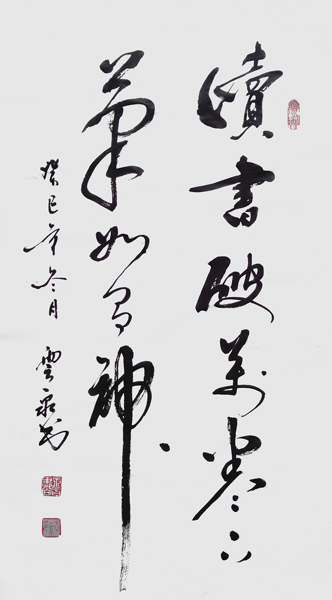 讀書破萬卷下
筆如有神
癸巳年冬月
雲泉書